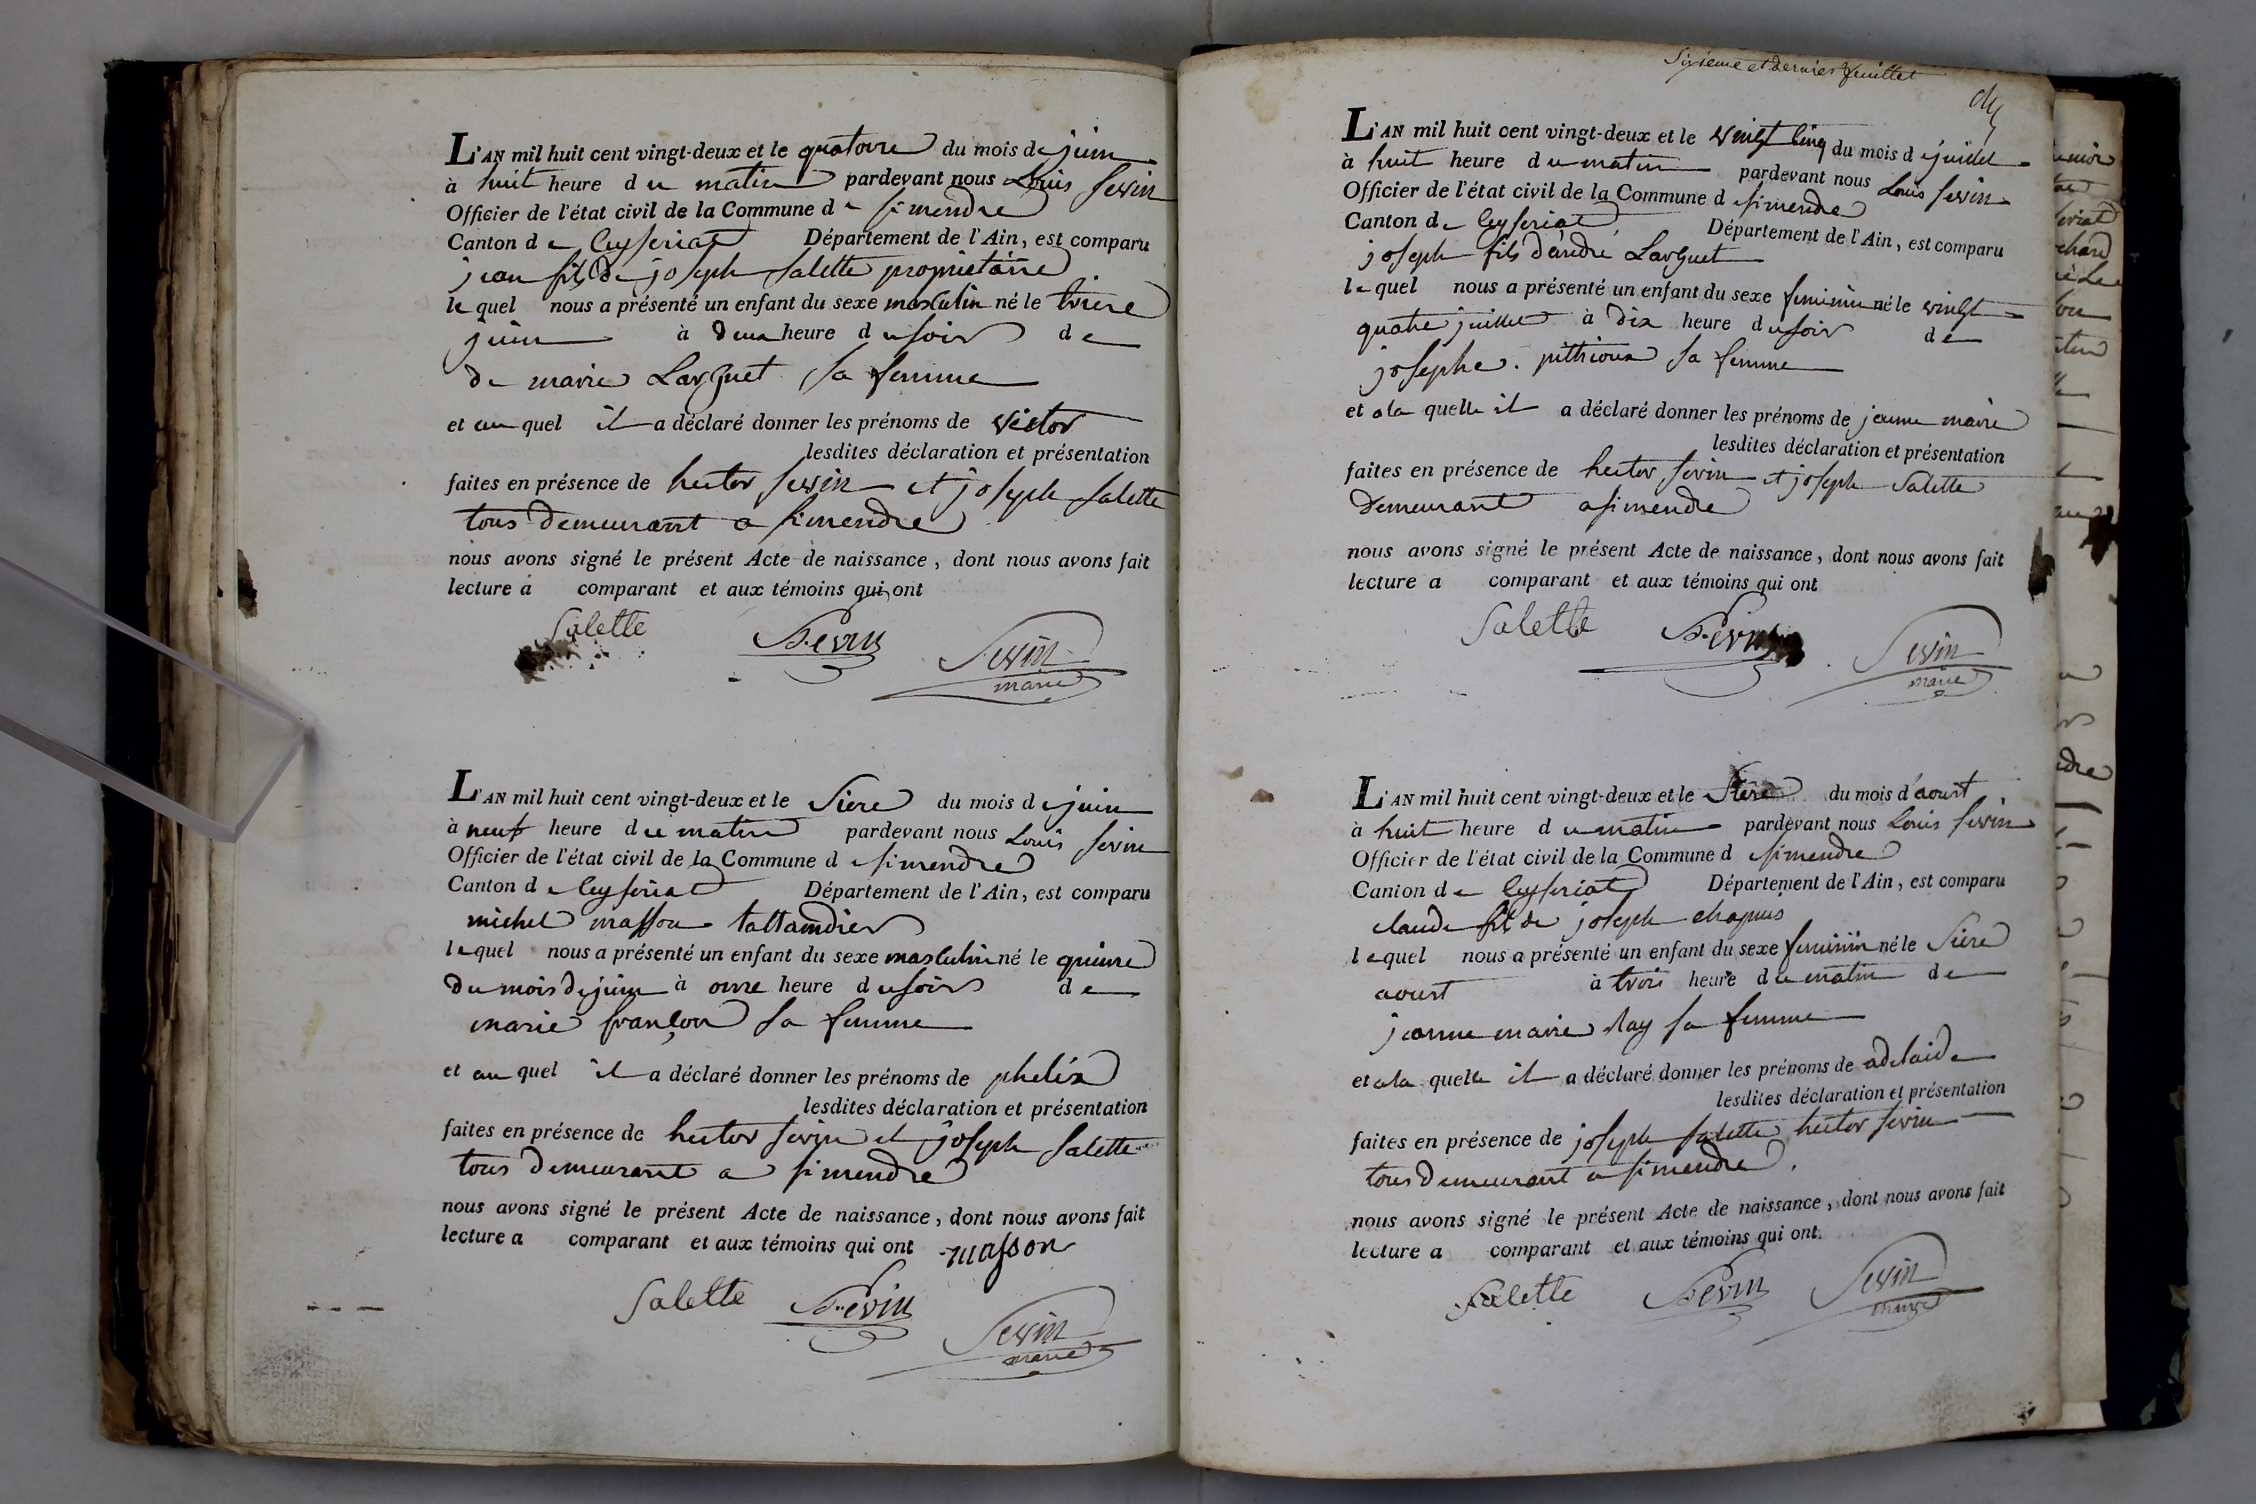 L'AN mil huit cent vingt-deux et le quatorze du mois de juin
à huit heure du matin pardevant nous Louis sevin
Officier de l'état civil de la Commune de simendre
Canton de Ceyseriat Département de l'Ain, est comparu
jean fils de joseph salette proprietaire
lequel nous a présenté un enfant du sexe masculin né le treize
juin à deux heure du soir de
de marie Larguet sa femme
et au quel il a déclaré donner les prénoms de victor
lesdites déclaration et présentation
faites en présence de hector sevin et joseph salette
tous demeurant a simendre
nous avons signé le présent Acte de naissance, dont nous avons fait
lecture à comparant et aux témoins qui ont
Salette Sevin Sevin
maire
L'AN mil huit cent vingt-deux et le Sieze du mois de juin
à neuf heure du matin pardevant nous Louis sevin
Officier de l'état civil de la Commune d simendre
Canton de Ceyseriat Département de l'Ain, est comparu
michel masson taillandier
lequel nous a présenté un enfant du sexe masculin né le quinze
du mois de juin à onze heure du soir de
marie françon sa femme
et au quel il a déclaré donner les prénoms de phelix
lesdites déclaration et présentation
faites en présence de hector sevin et joseph salette
tous demeurant a simendre
nous avons signé le présent Acte de naissance, dont nous avons fait
lecture a comparant et aux témoins qui ont masson
Salette Sevin
Sevin
maire
Sixieme et dernier feuillet
L'AN mil huit cent vingt-deux et le vingt cinq du mois de juillet
à huit heure du matin pardevant nous Louis sevin
Officier de l'état civil de la Commune d simendre
Canton de Ceyseriat Département de l'Ain, est comparu
joseph fils d'andré Larguet
lequel nous a présenté un enfant du sexe feminin né le vingt
quatre juillet à dix heure du soir de
josephe pithioux sa femme
et a la quelle il a déclaré donner les prénoms de jeanne marie
lesdites déclaration et présentation
faites en présence de hector sevin et joseph salette
demeurant a simendre
nous avons signé le présent Acte de naissance, dont nous avons fait
lecture a comparant et aux témoins qui ont
Salette Sevin Sevin
maire
L'AN mil huit cent vingt-deux et le Sieze du mois d'aoust
à huit heure du matin pardevant nous Louis sevin
Officier de l'état civil de la Commune d simendre
Canton de Ceyseriat Département de l'Ain, est comparu
claude fil de joseph chapuis
lequel nous a présenté un enfant du sexe feminin né le Sieze
aoust à trois heure du matin de
jeanne marie Ray sa femme
et a la quelle il a déclaré donner les prénoms de adelaide
lesdites déclaration et présentation
faites en présence de joseph salette hector sevin
tous demeurant a simendre
nous avons signé le présent Acte de naissance, dont nous avons fait
lecture a comparant et aux témoins qui ont
Salette Sevin Sevin
maire